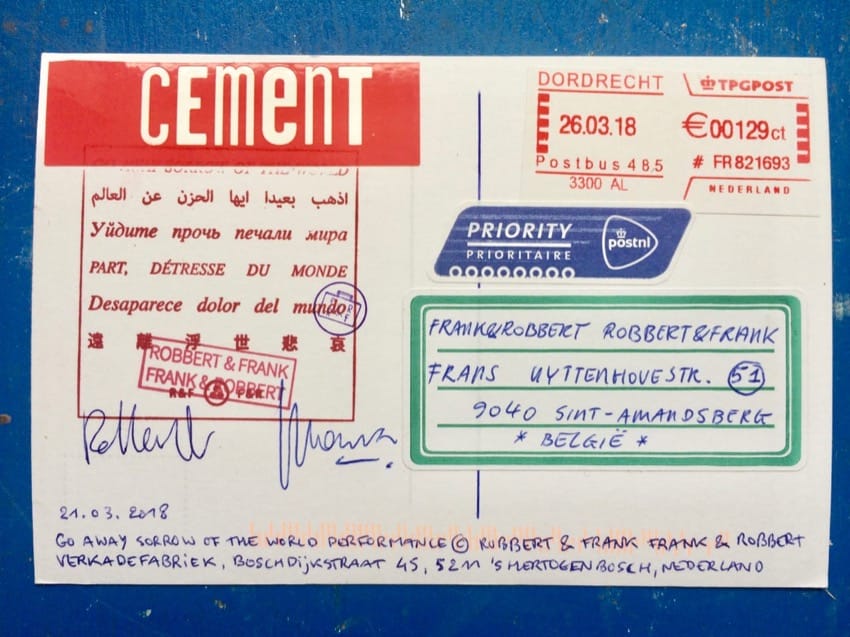 CEMENT
GO AWAY SORROW OF THE WORLD
اذهب بعيدا ايها الحزن عن العالم
Уйдите прочь печали мира
PART, DÉTRESSE DU MONDE
Desaparece dolor del mundo
遠離浮世悲哀
ROBBERT & FRANK
FRANK & ROBBERT
R&F F&R
DORDRECHT
26.03.18
Postbus 485
3300 AL
TPGPOST
€00129ct
# FR821693
NEDERLAND
PRIORITY
PRIORITAIRE
postnl
FRANK&ROBBERT ROBBERT&FRANK
FRANS UYTTENHOVESTR. 51
9040 SINT-AMANDSBERG
* BELGIË *
21.03.2018
GO AWAY SORROW OF THE WORLD PERFORMANCE © ROBBERT & FRANK FRANK & ROBBERT
VERKADEFABRIEK, BOSCHDIJKSTRAAT 45, 5211 'S HERTOGENBOSCH, NEDERLAND